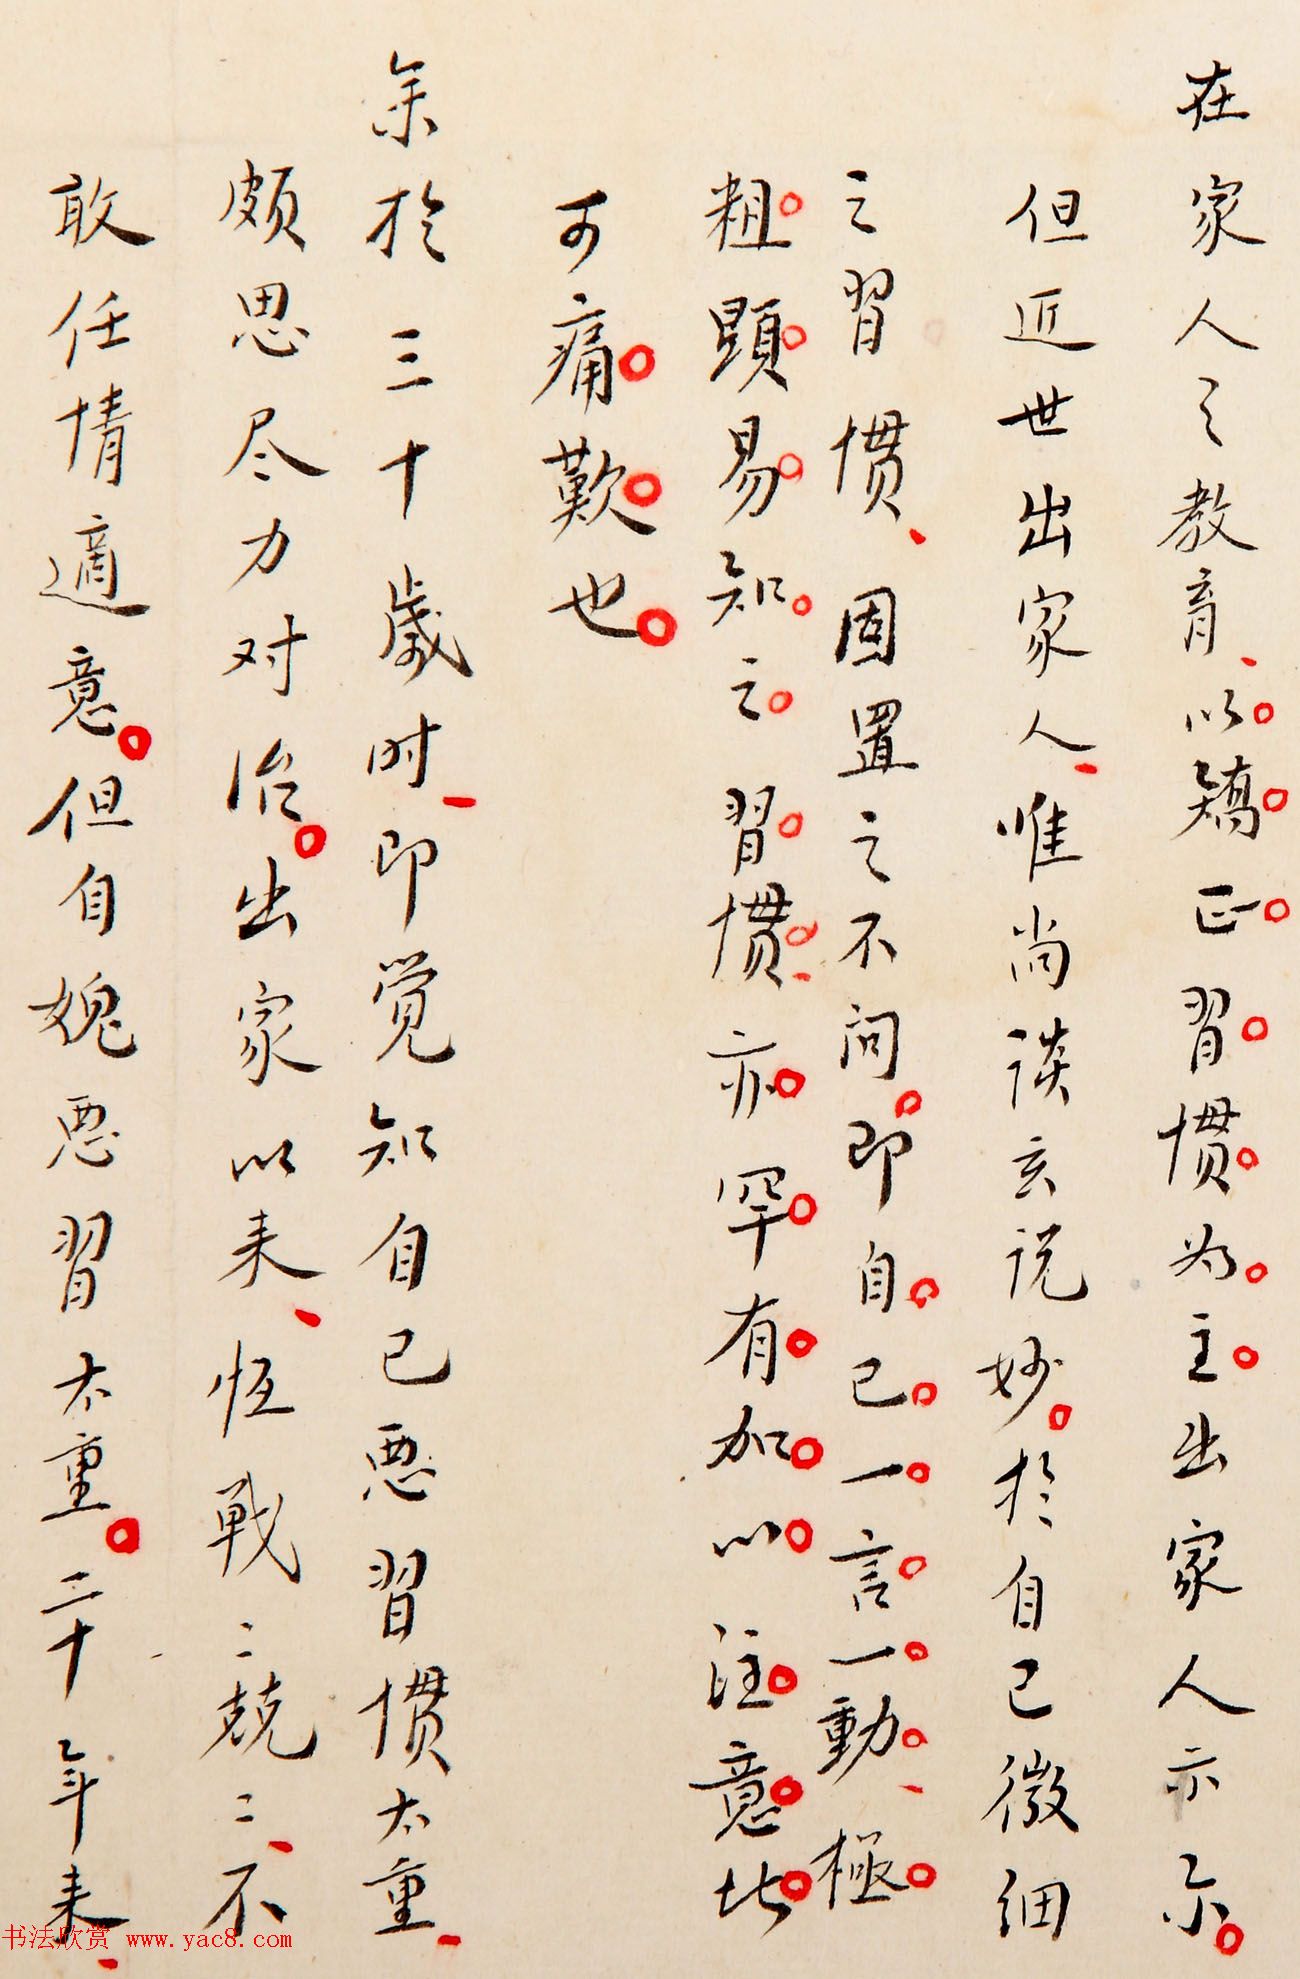 在家人之教育、以矯正習慣为主。出家人亦尔。
但近世出家人、唯尚談玄说妙。於自己微细
之習慣、固置之不问。即自己一言一動、極
粗顕易知之習慣、亦罕有加以注意者。
可痛歎也。
余於三十歲时、即觉知自己恶習慣太重、
頗思尽力对治。出家以来、恆戰〻兢〻、不
敢任情適意。但自媿恶習太重。二十年来、
书法欣赏 www.yac8.com